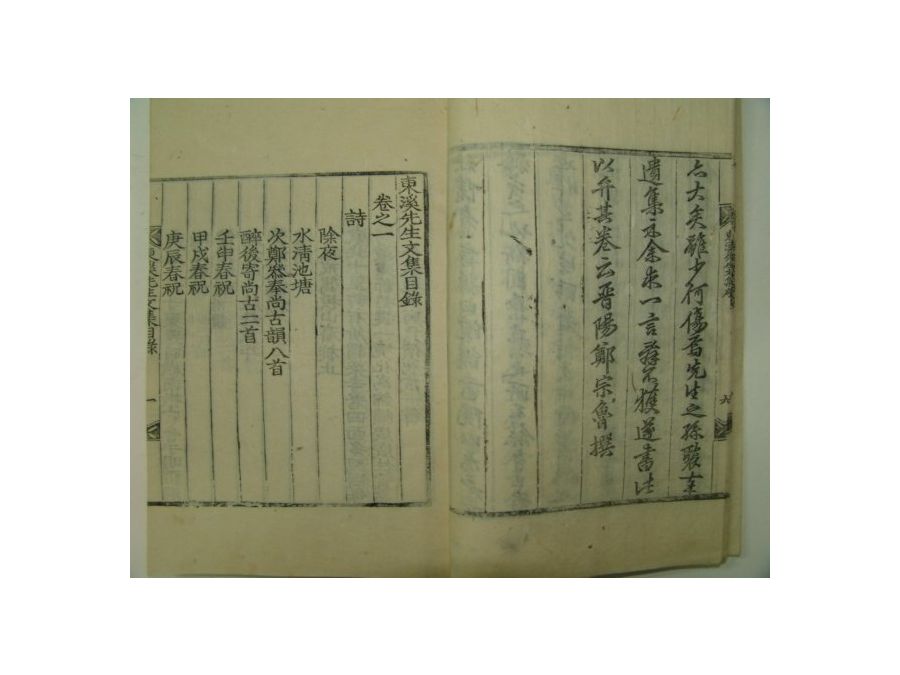 亦大矣雖少何傷焉先生之孫
遺集示余求一言辭不獲遂書此
以弁其卷云晉陽鄭宗魯撰
東溪先生文集目錄
卷之一
詩
除夜
水淸池塘
次鄭叅奉尚古韻八首
醉後寄尚古二首
壬申春祝
甲戌春祝
庚辰春祝
東溪先生文集目錄
一